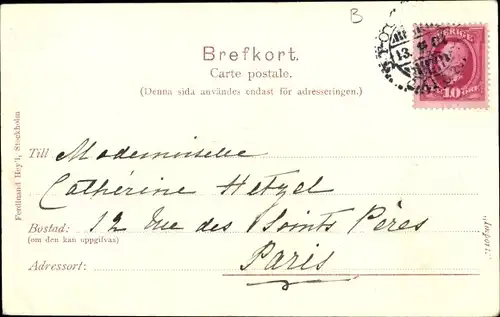 B
SVERIGE
13.
10 ÖRE
Brefkort.
Carte postale.
(Denna sida användes endast för adresseringen.)
Ferdinand Hey'l, Stockholm
Till Mademoiselle
Cathérine Hetzel
Bostad: 12 Rue des Saints Pères
(om den kan uppgifvas)
Adressort: Paris